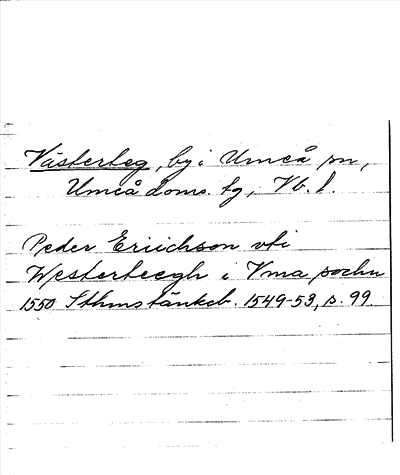 Västerteg, by i Umeå sn,
Umeå doms. tg, Vb. l.
Peder Eriichson vti
Westerteegh i Vma sochn
1550 Sthms tänkeb. 1549-53, s. 99.